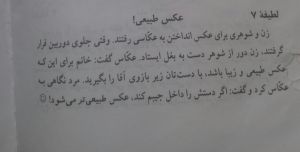 لطیفهٔ ۷
عکس طبیعی!
زن و شوهری برای عکس انداختن به عکّاسی رفتند. وقتی جلوی دوربین قرار
گرفتند، زن دور از شوهر دست به بغل ایستاد. عکّاس گفت: خانم برای این که
عکس طبیعی و زیبا باشد، با دست‌تان زیر بازوی آقا را بگیرید. مرد نگاهی به
عکّاس کرد و گفت: اگر دستش را داخل جیبم کند، عکس طبیعی‌تر می‌شود! ☺